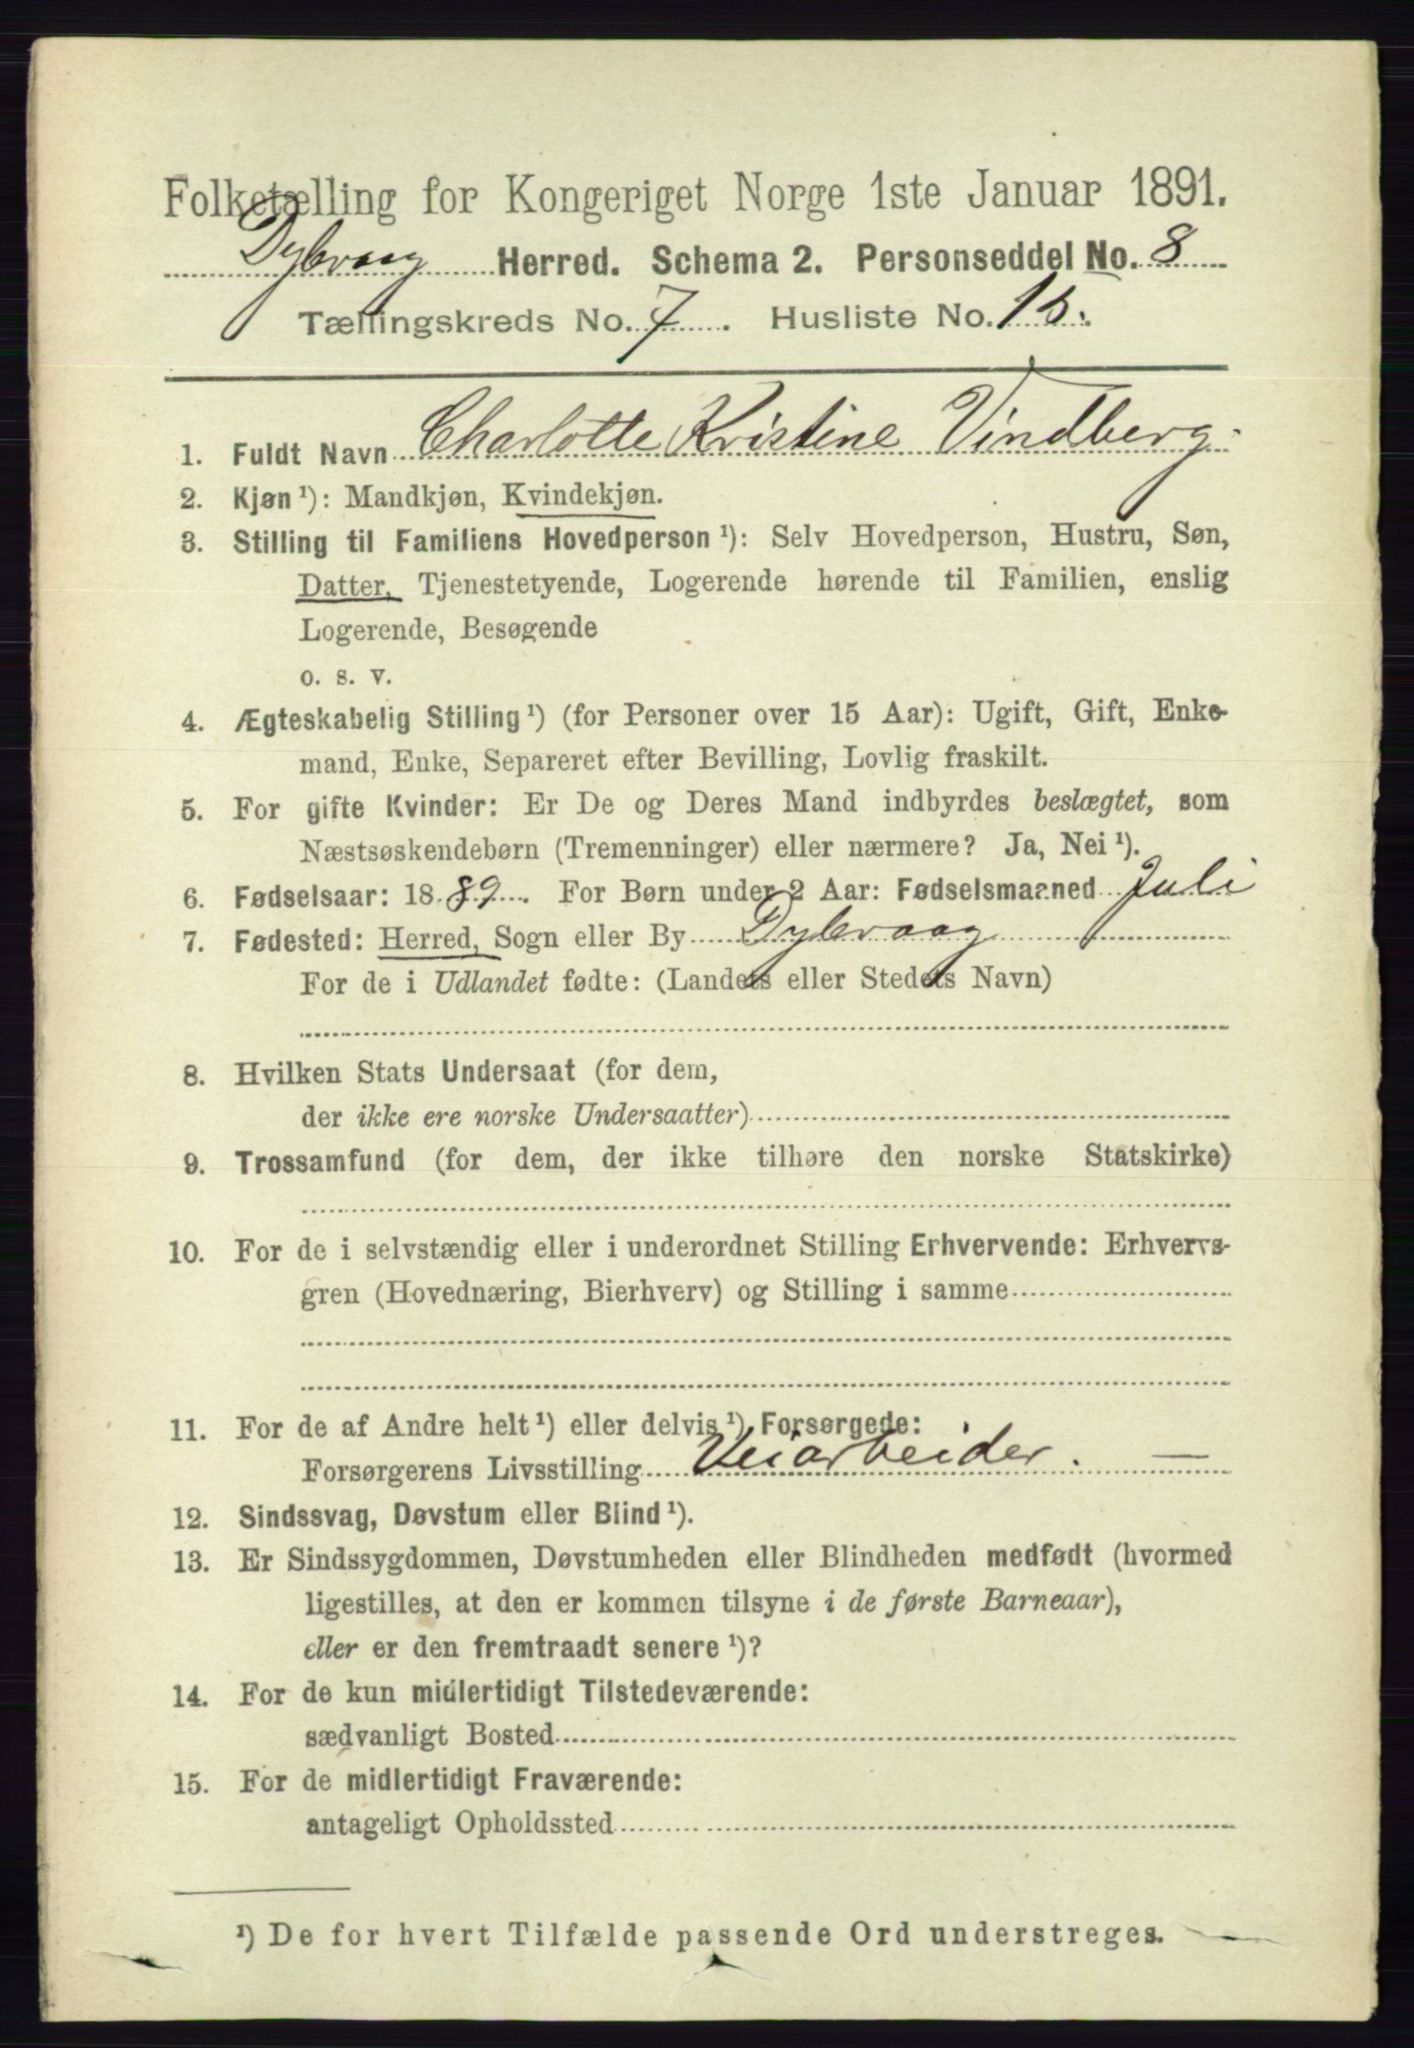 Folketælling for Kongeriget Norge 1ste Januar 1891.
Dybvaag Herred. Schema 2. Personseddel No. 8
Tællingskreds No. 7. Husliste No. 15.
1. Fuldt Navn Charlotte Kristine Vindberg
2. Kjøn ¹): Mandkjøn, Kvindekjøn.
3. Stilling til Familiens Hovedperson ¹): Selv Hovedperson, Hustru, Søn,
Datter, Tjenestetyende, Logerende hørende til Familien, enslig
Logerende, Besøgende
o. s. v.
4. Ægteskabelig Stilling ¹) (for Personer over 15 Aar): Ugift, Gift, Enke-
mand, Enke, Separeret efter Bevilling, Lovlig fraskilt.
5. For gifte Kvinder: Er De og Deres Mand indbyrdes beslægtet, som
Næstsøskendebørn (Tremenninger) eller nærmere? Ja, Nei ¹).
6. Fødselsaar: 1889. For Børn under 2 Aar: Fødselsmaaned Juli
7. Fødested: Herred, Sogn eller By Dybvaag
For de i Udlandet fødte: (Landets eller Stedets Navn)
8. Hvilken Stats Undersaat (for dem,
der ikke ere norske Undersaatter)
9. Trossamfund (for dem, der ikke tilhøre den norske Statskirke)
10. For de i selvstændig eller i underordnet Stilling Erhvervende: Erhvervs-
gren (Hovednæring, Bierhverv) og Stilling i samme
11. For de af Andre helt ¹) eller delvis ¹) Forsørgede:
Forsørgerens Livsstilling Veiarbeider. —
12. Sindssvag, Døvstum eller Blind ¹).
13. Er Sindssygdommen, Døvstumheden eller Blindheden medfødt (hvormed
ligestilles, at den er kommen tilsyne i de første Barneaar),
eller er den fremtraadt senere ¹)?
14. For de kun midlertidigt Tilstedeværende:
sædvanligt Bosted
15. For de midlertidigt Fraværende:
antageligt Opholdssted
¹) De for hvert Tilfælde passende Ord understreges.